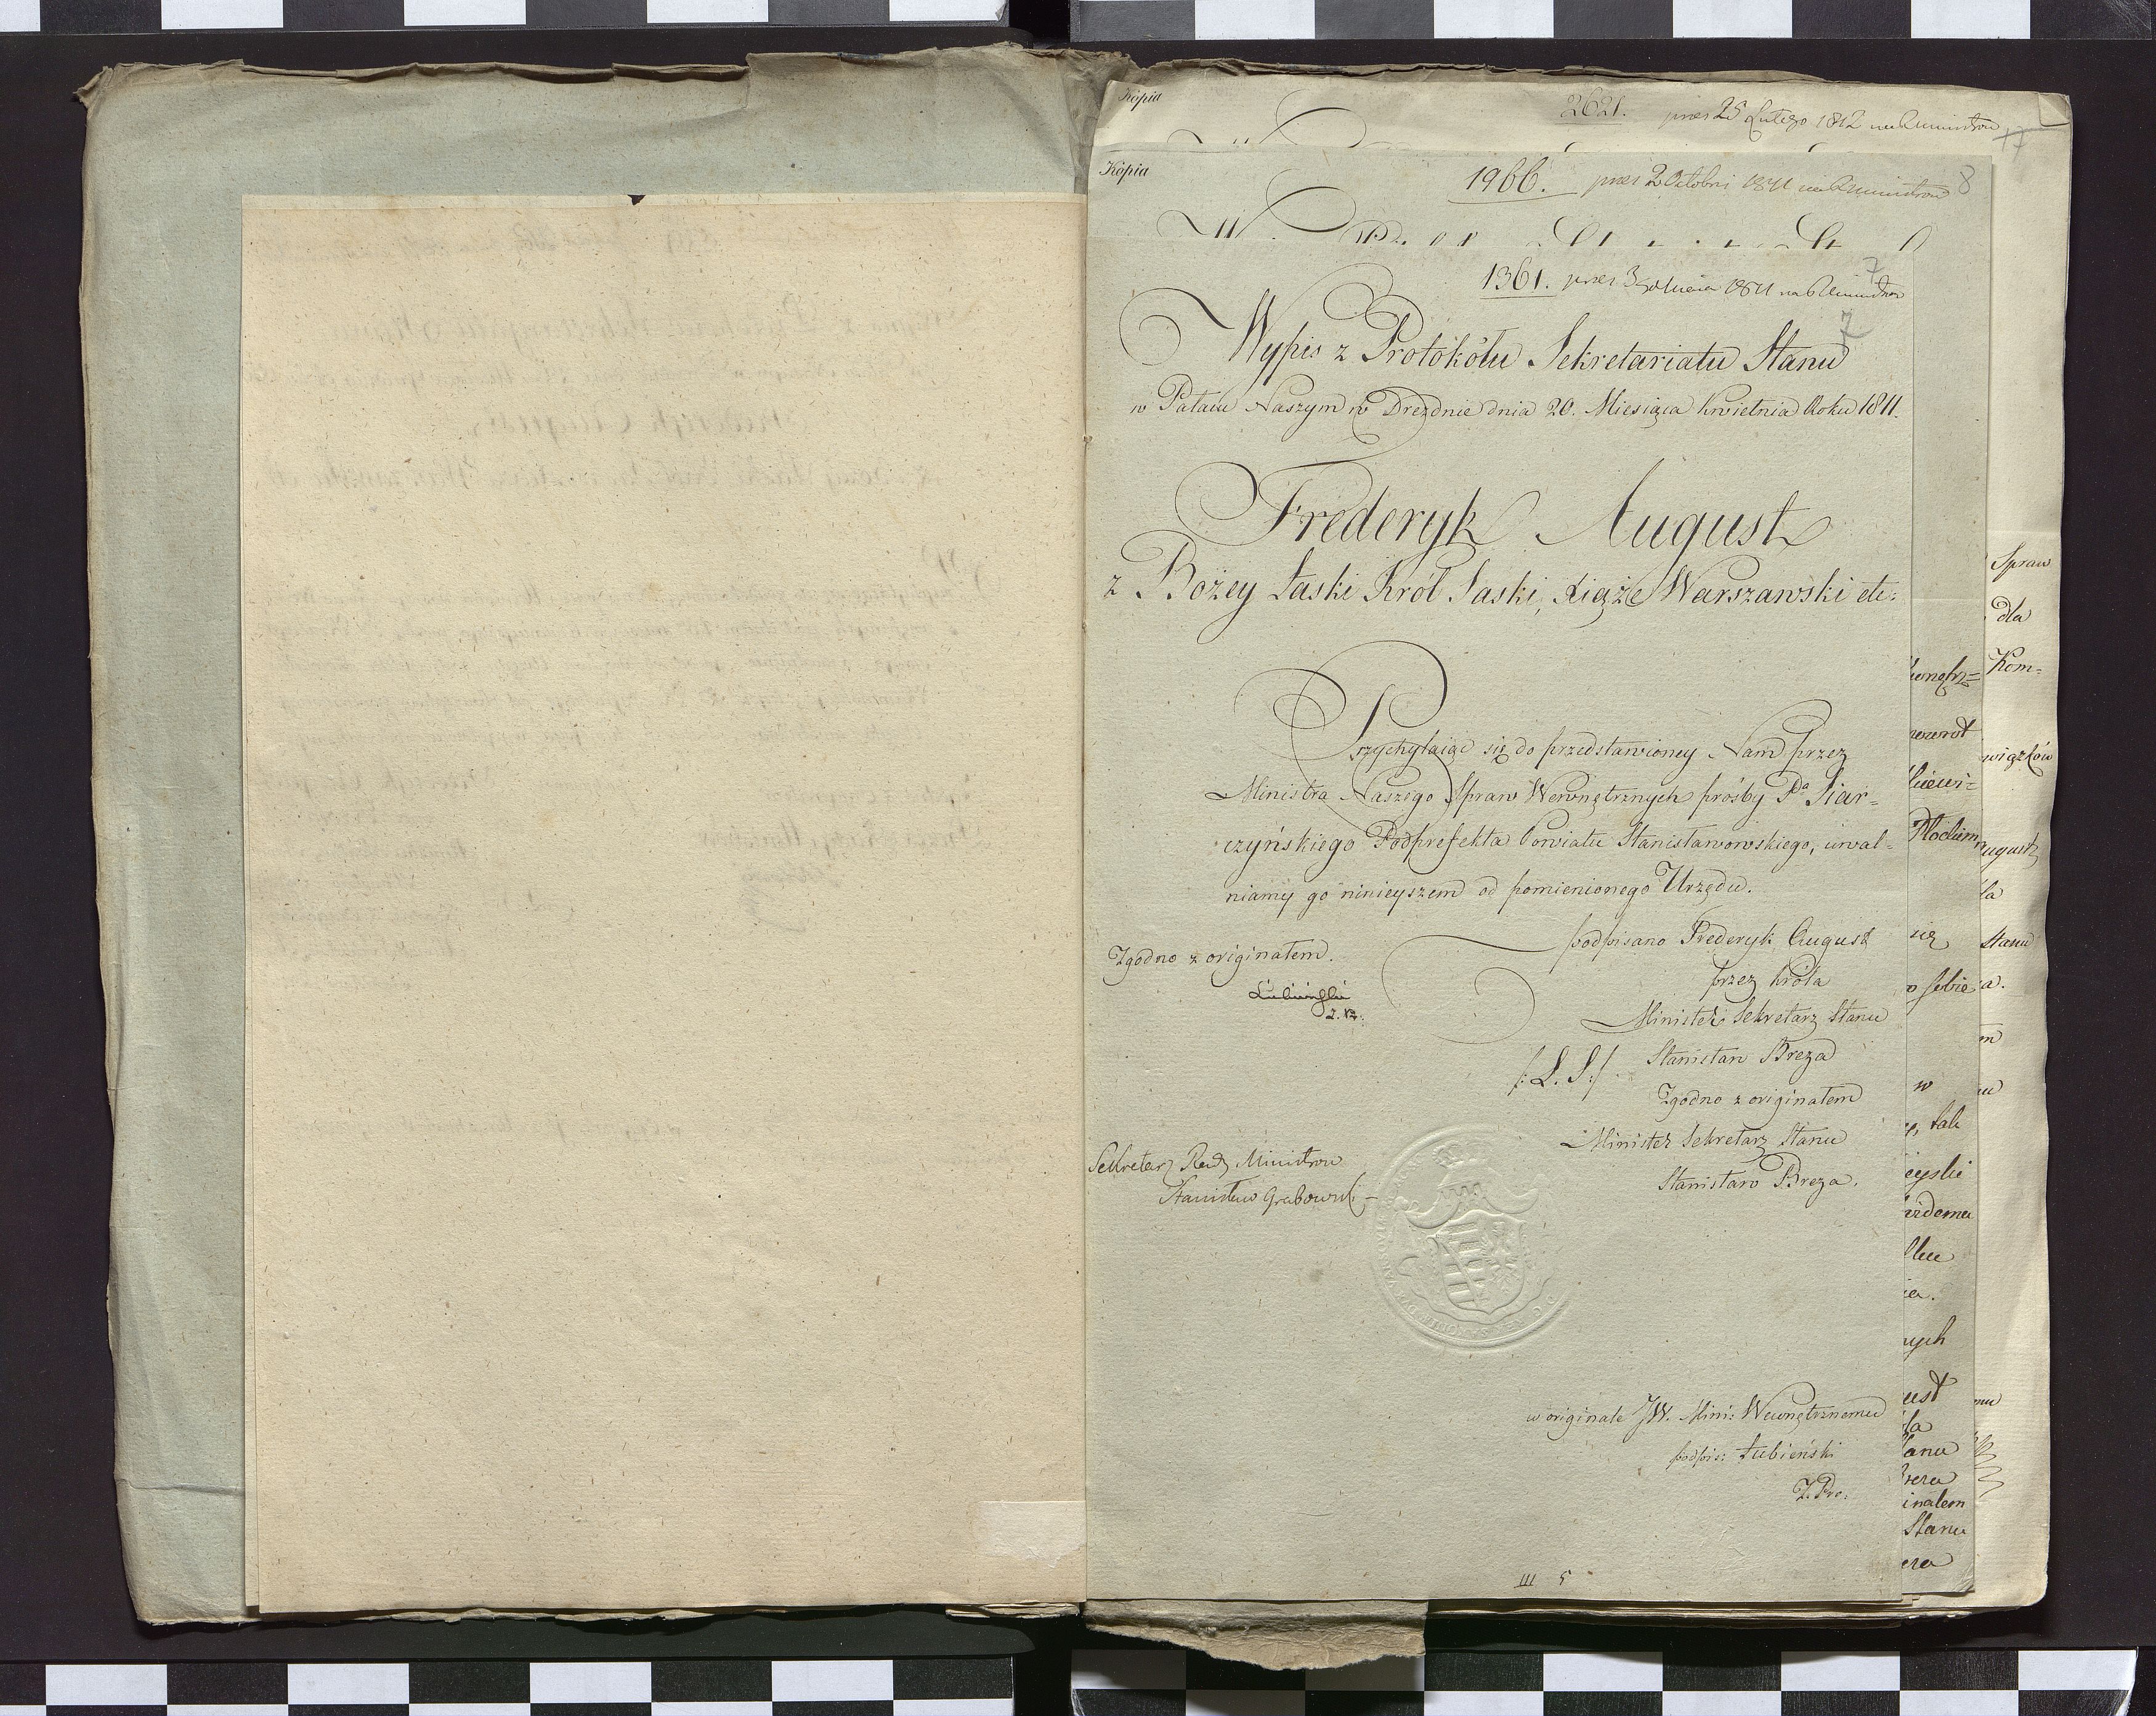 Kopia
2621. 25 Lutego 1812
17
Kopia
1966. 2 Octobri 1811
8
1361. 1811
7
7
Wypis z Protokółu Sekretariatu Stanu
w Pałacu Naszym w Dreznie dnia 20. Miesiąca Kwietnia Roku 1811.
Frederyk August
z Bożey Łaski Król Saski, Xiąże Warszawski etc:
Przychylaiąc się do przedstawioney Nam przez
Ministra Naszego Spraw Wewnętrznych prośby Pa Siar=
czyńskiego Podprefekta Powiatu Stanisławowskiego, uwal=
niamy go ninieyszem od pomienionego Urzędu.
podpisano Frederyk August
przez Króla
Minister Sekretarz Stanu
/: L. S :/ Stanisław Breza
Zgodno z originałem
Minister Sekretarz Stanu
Stanisław Breza.
Zgodno z originałem.
Łubieński
Sekretarz Rady Ministrow
Stanisław Grabowski
w originale JW. Mini: Wewnętrznemu
podpis: Łubieński
Z. Pre.
III 5
Spraw
dla
Kom=
wiązków
ugust
la
Stanu
a.
wnętrz=
Płockim
się
o sobie
w
tak
eyskie
nych
ust
la
tanu
reza
inałem
Stanu
eza